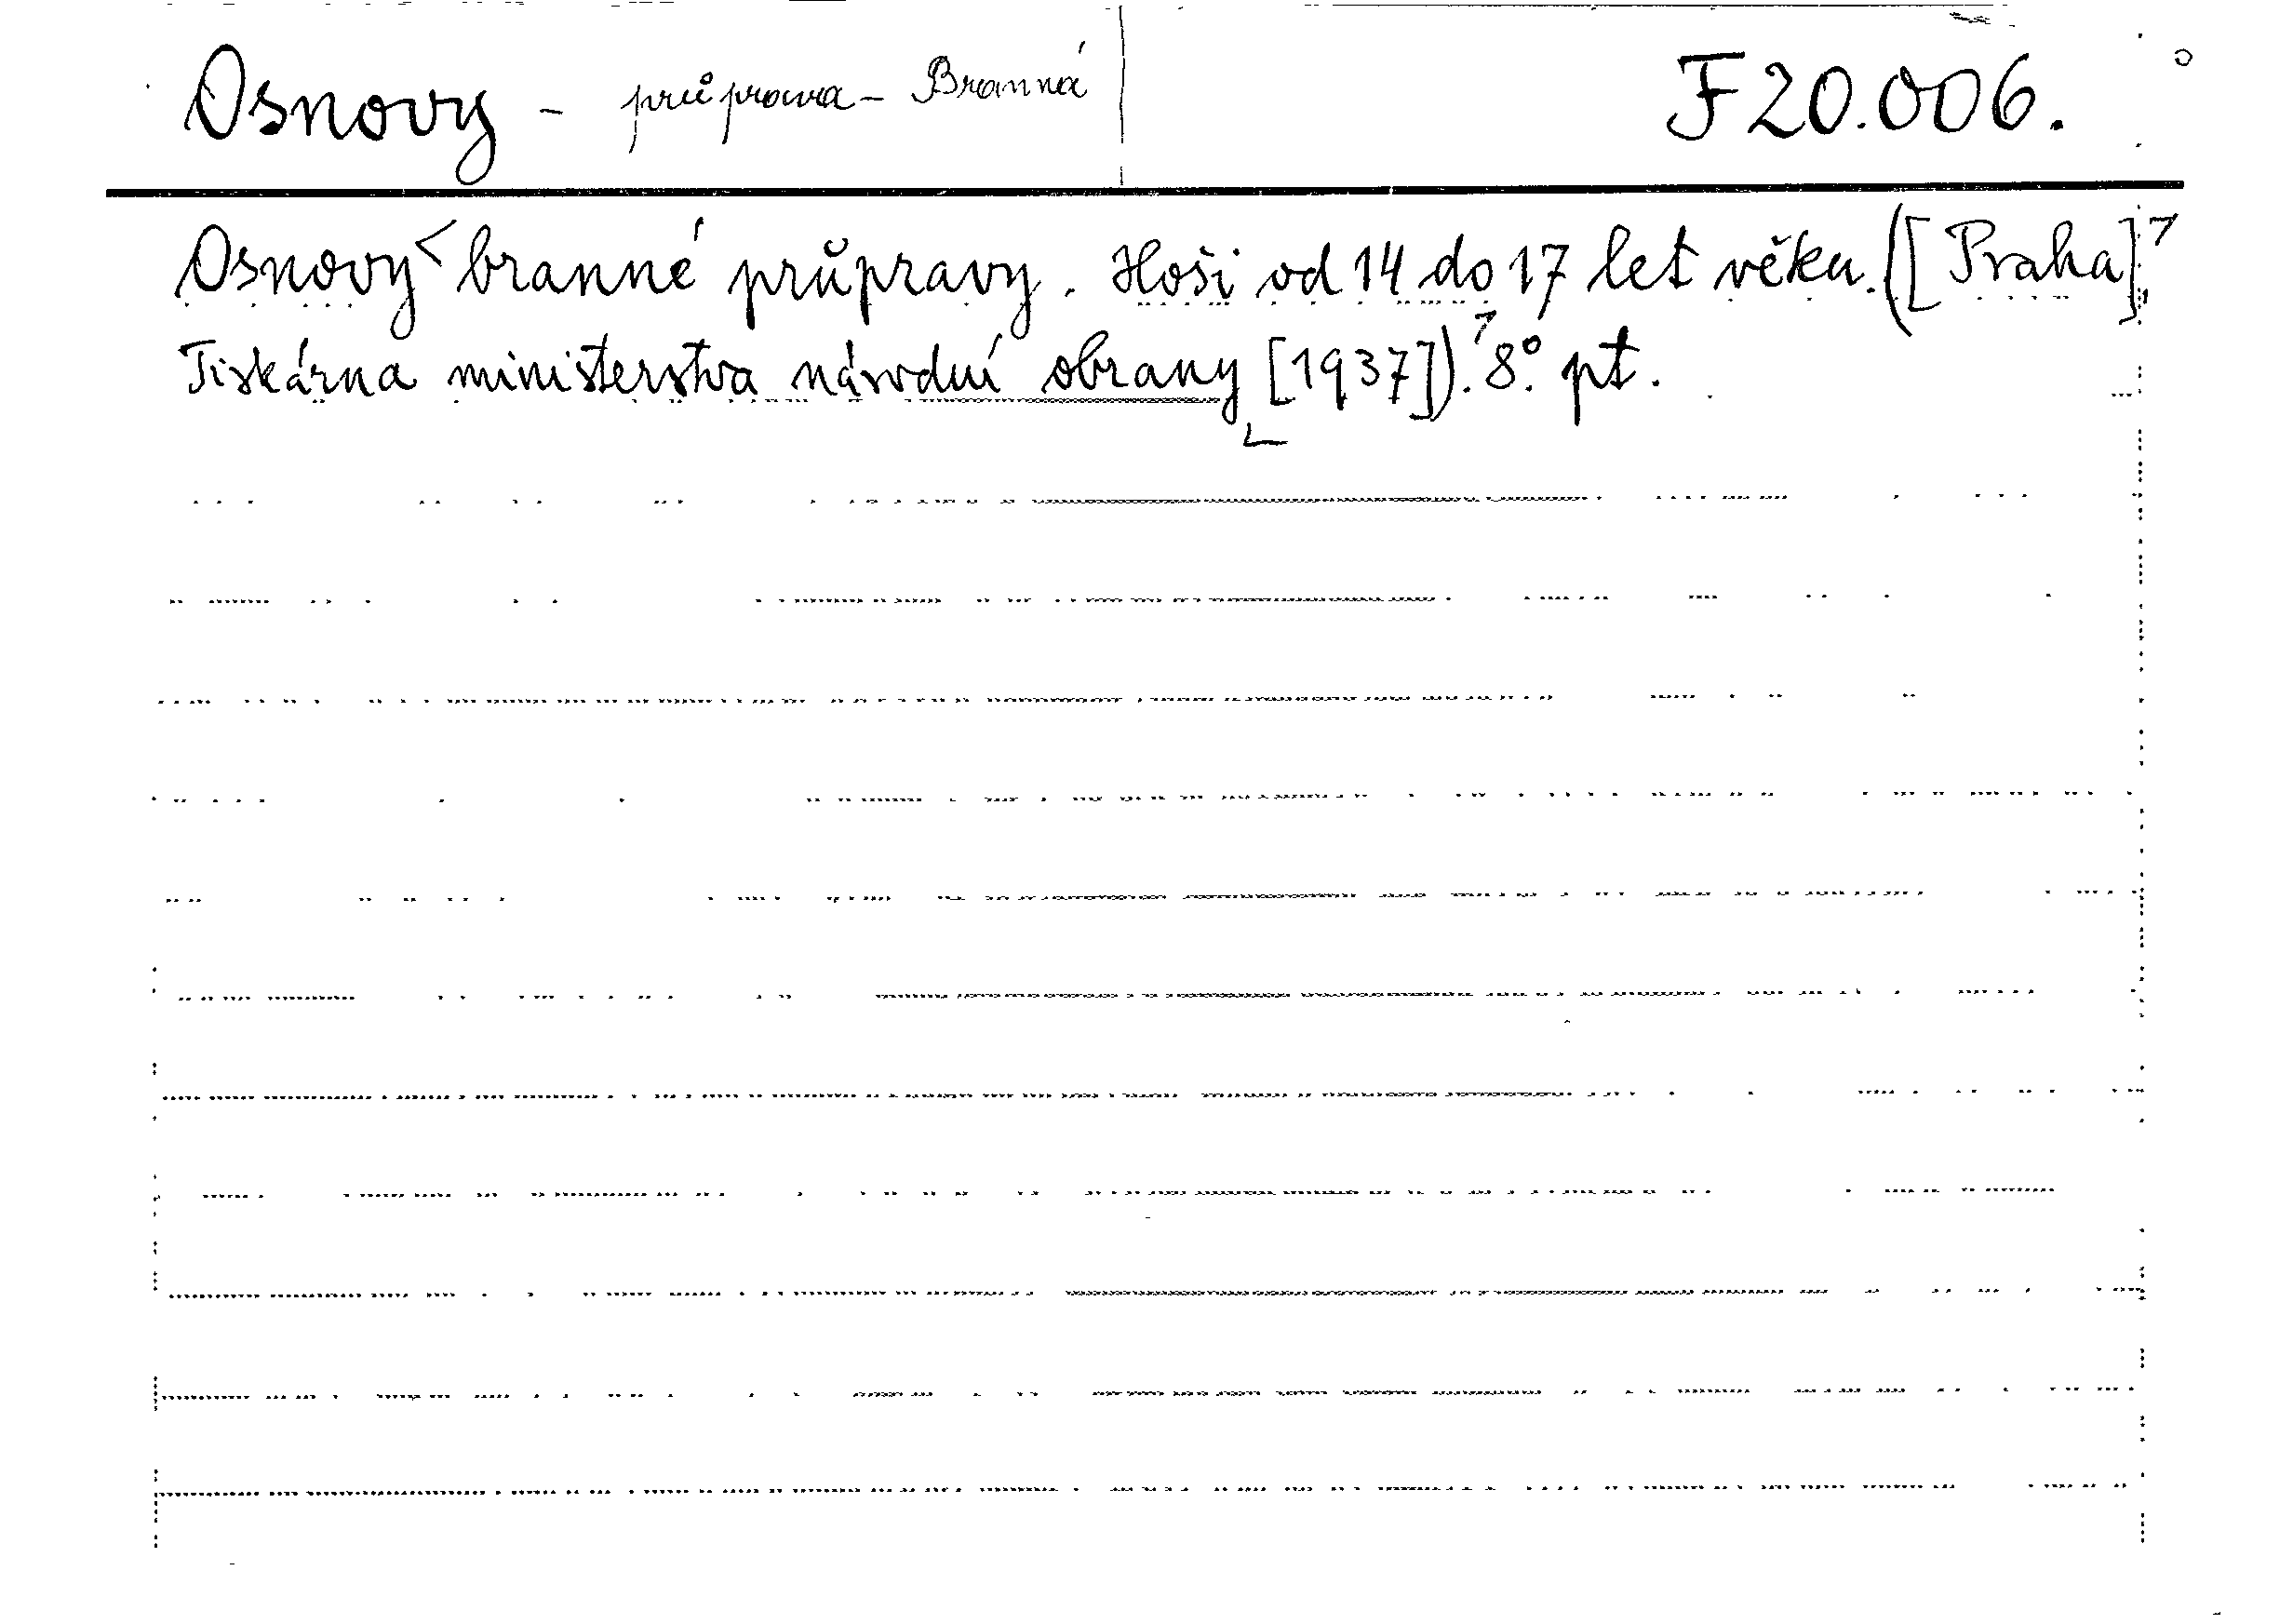 Osnovy - průprava - Branná F 20.006.
Osnovy branné průpravy. Hoši od 14 do 17 let věku. ([Praha],
Tiskárna ministerstva národní obrany [1937]). 8°. pt.